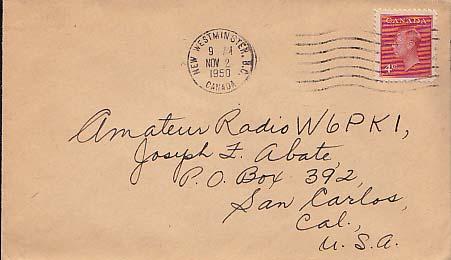 NEW WESTMINSTER, B.C.
9 AM
NOV 2
1950
CANADA
CANADA
4¢
Amateur Radio W6PK1,
Joseph F. Abate,
P.O. Box 392,
San Carlos,
Cal.,
U.S.A.